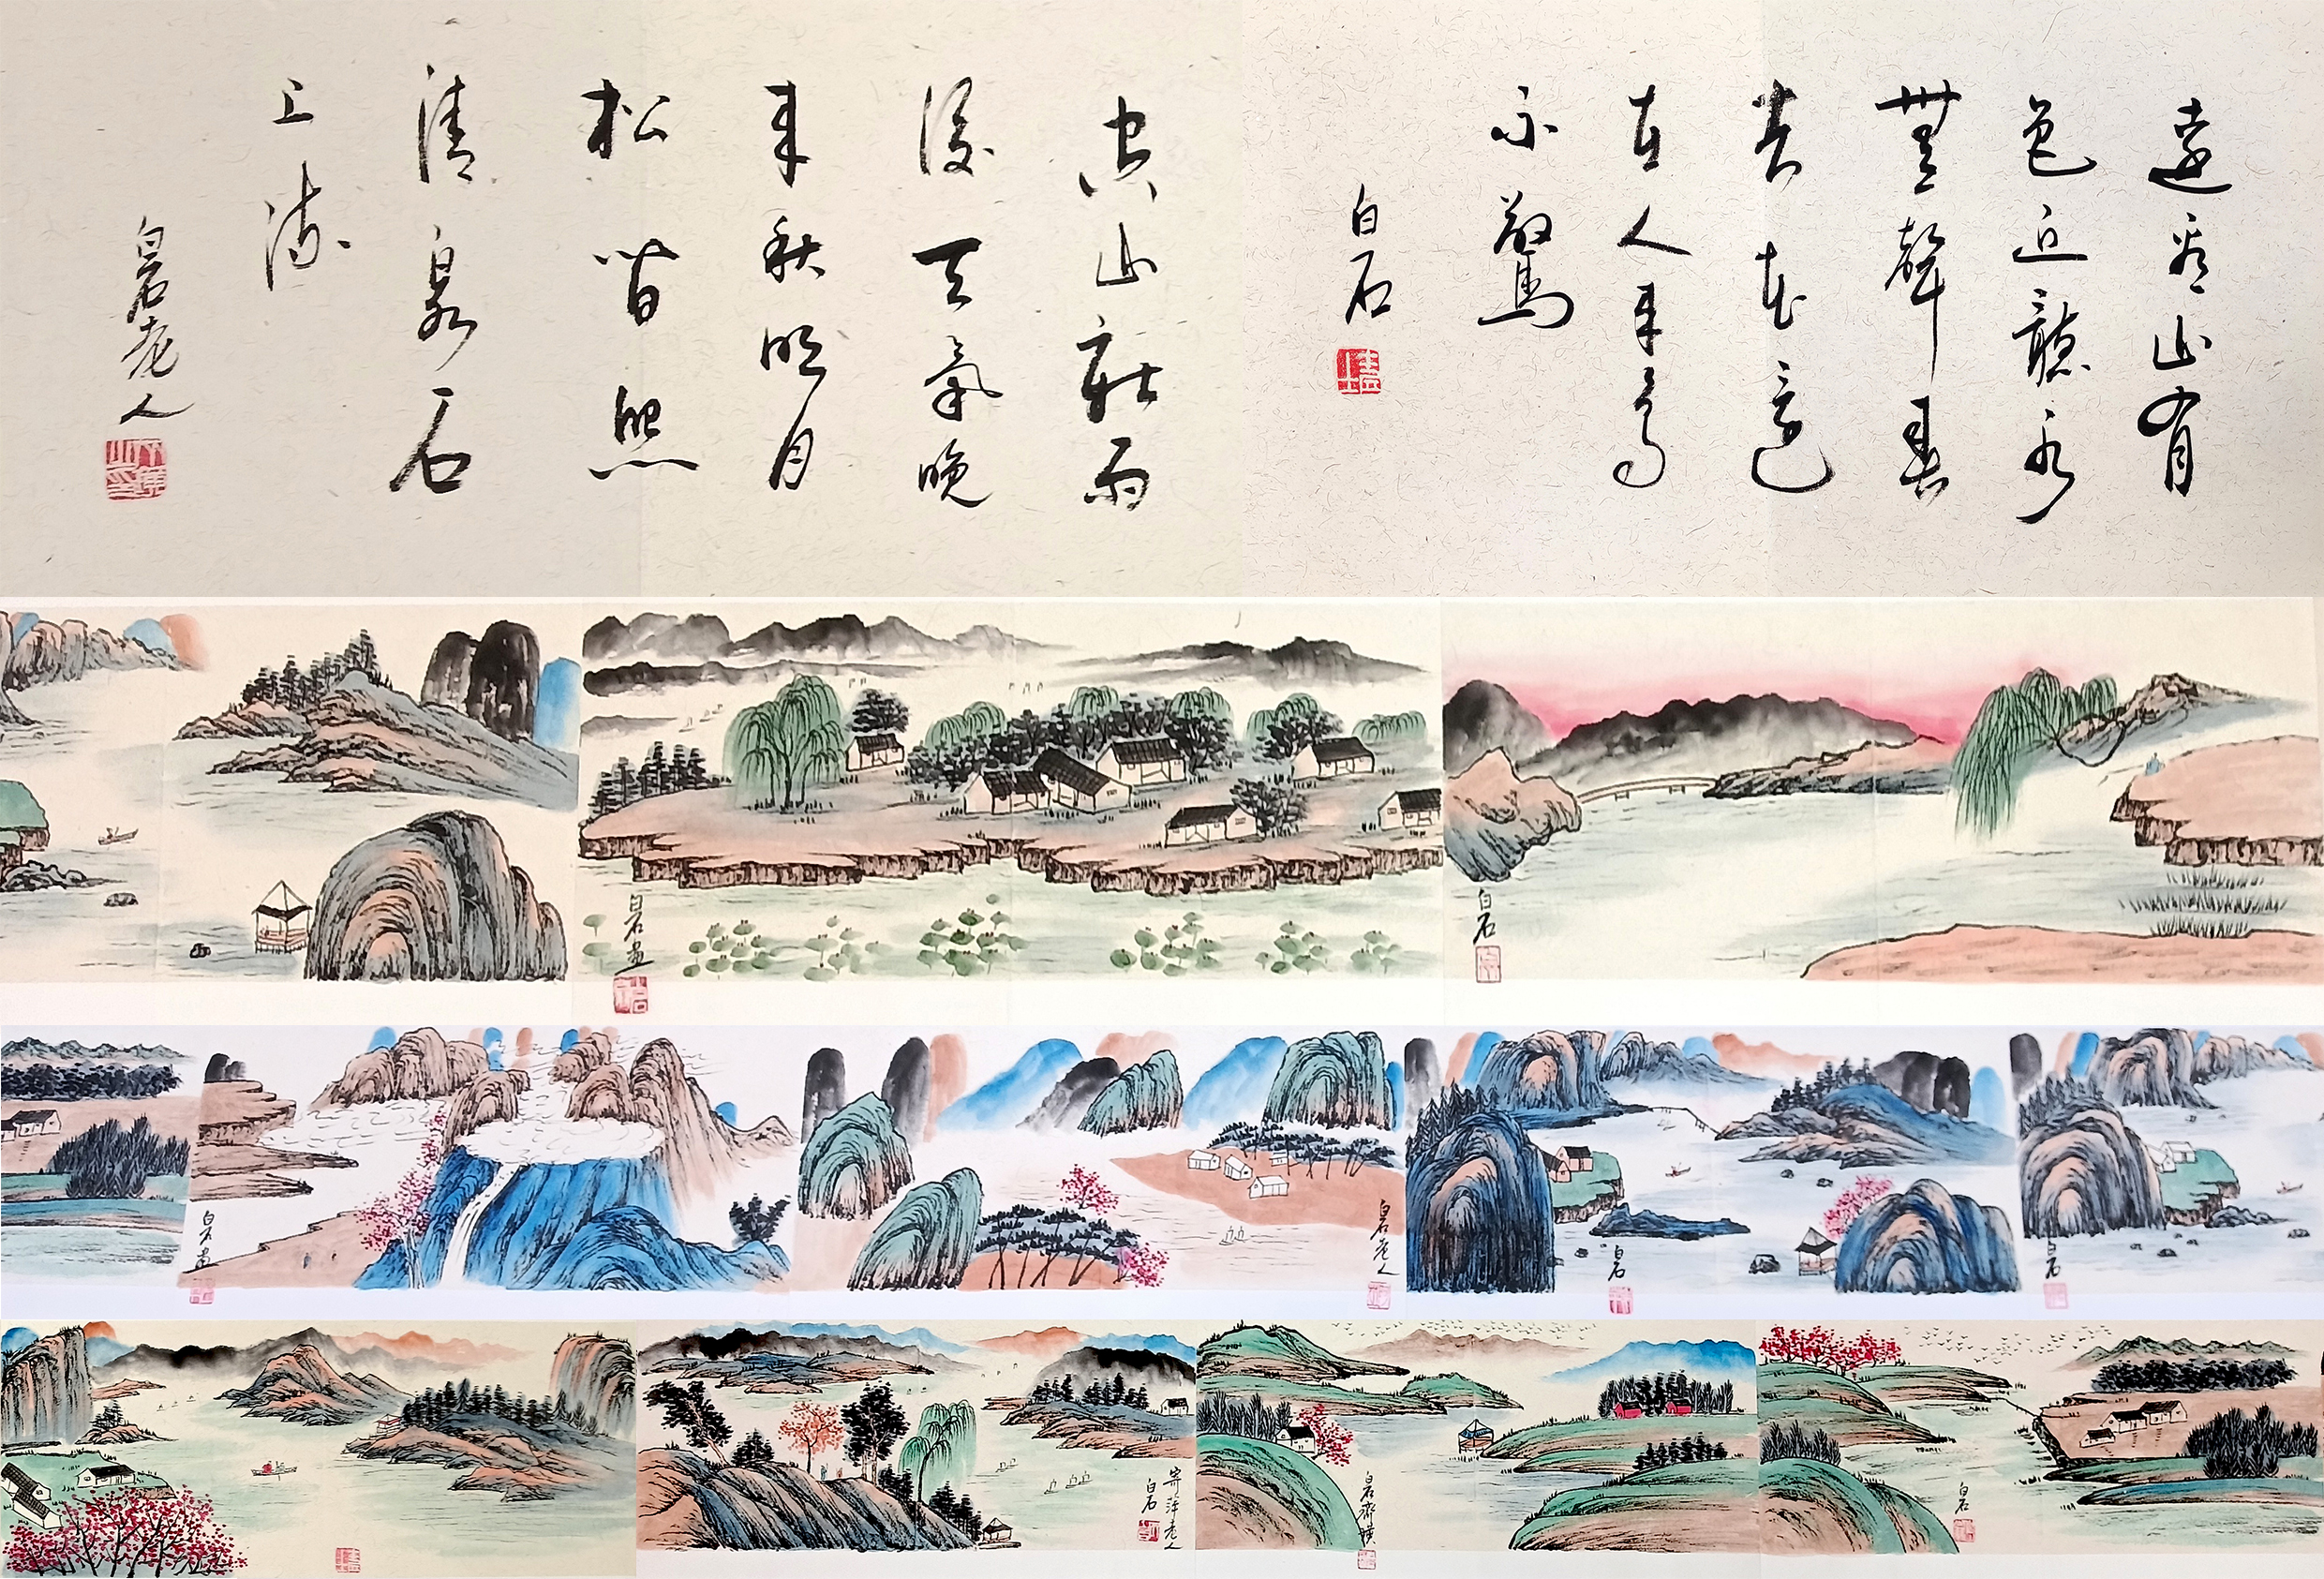 遠看山有
色近聽水
無聲春
去花還
在人來鳥
不驚
白石
空山新雨
後天氣晚
來秋明月
松間照
清泉石
上流
白石老人
白石
白石畫
白石
白石
白石老人
白石畫
白石
白石齊璜
寄萍老人
白石